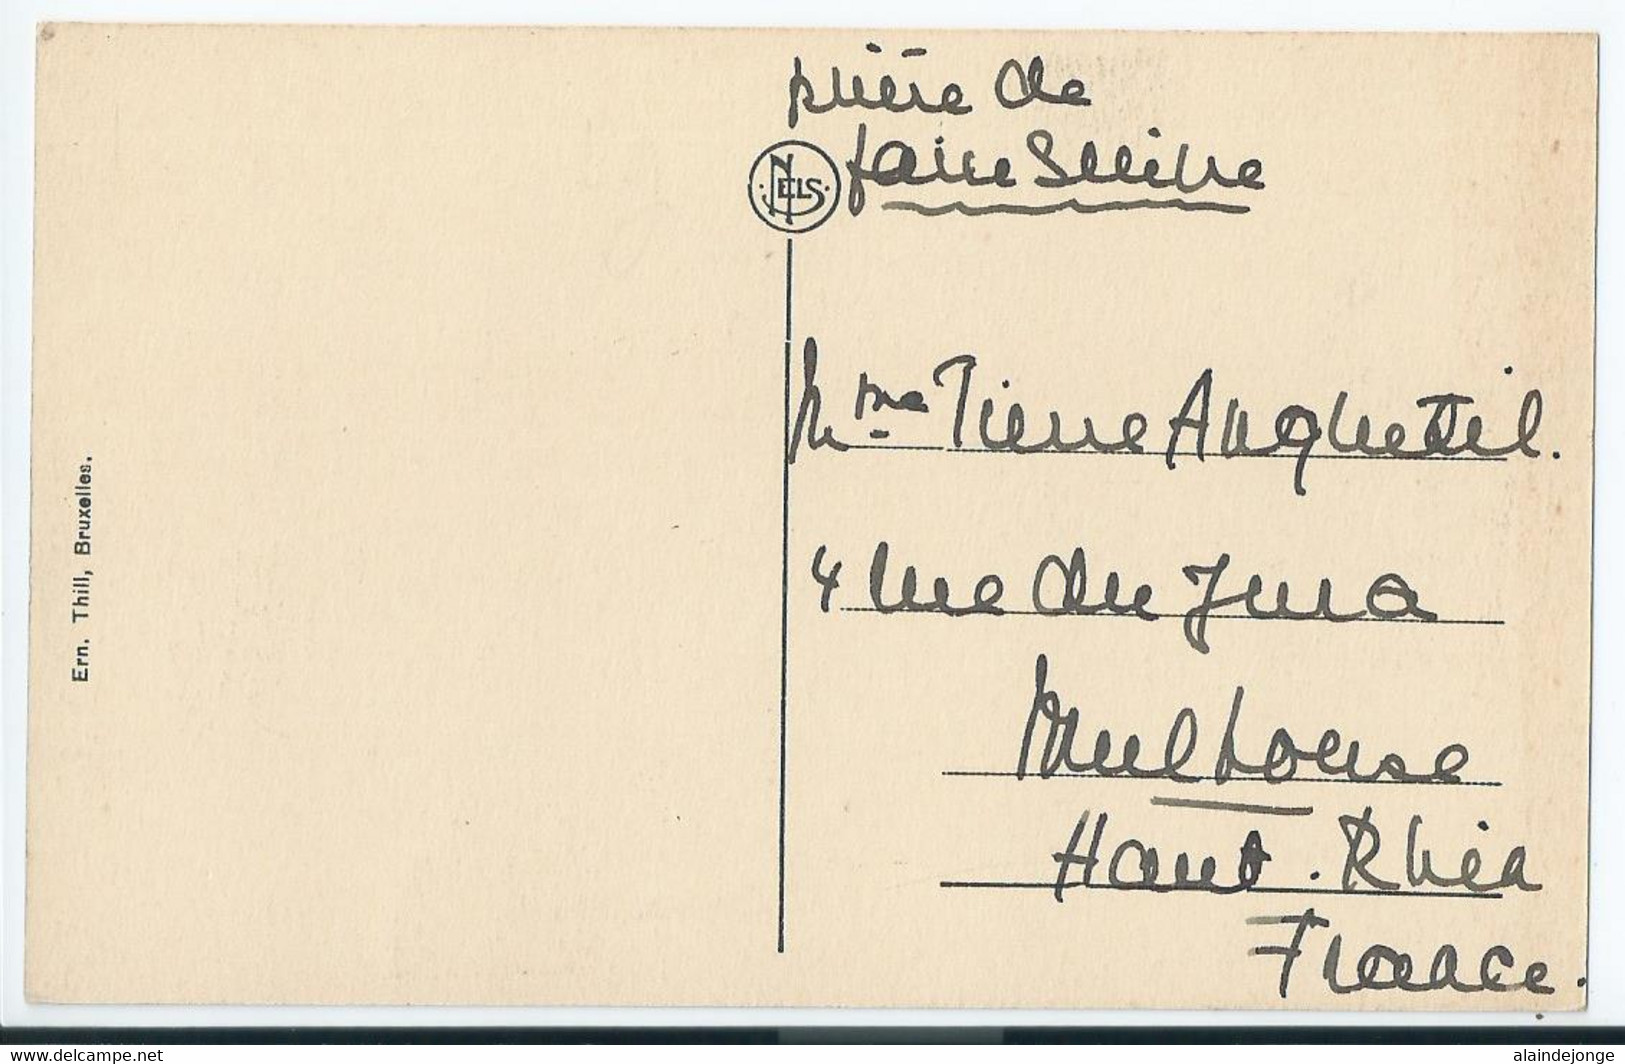 prière de
faire Suivre
NELS
Mme Pierre Anquetil.
4 rue du Jura
Mulhouse
Haut. Rhin
France.
Ern. Thill, Bruxelles.
https://www.delcampe.net
alaindejonge